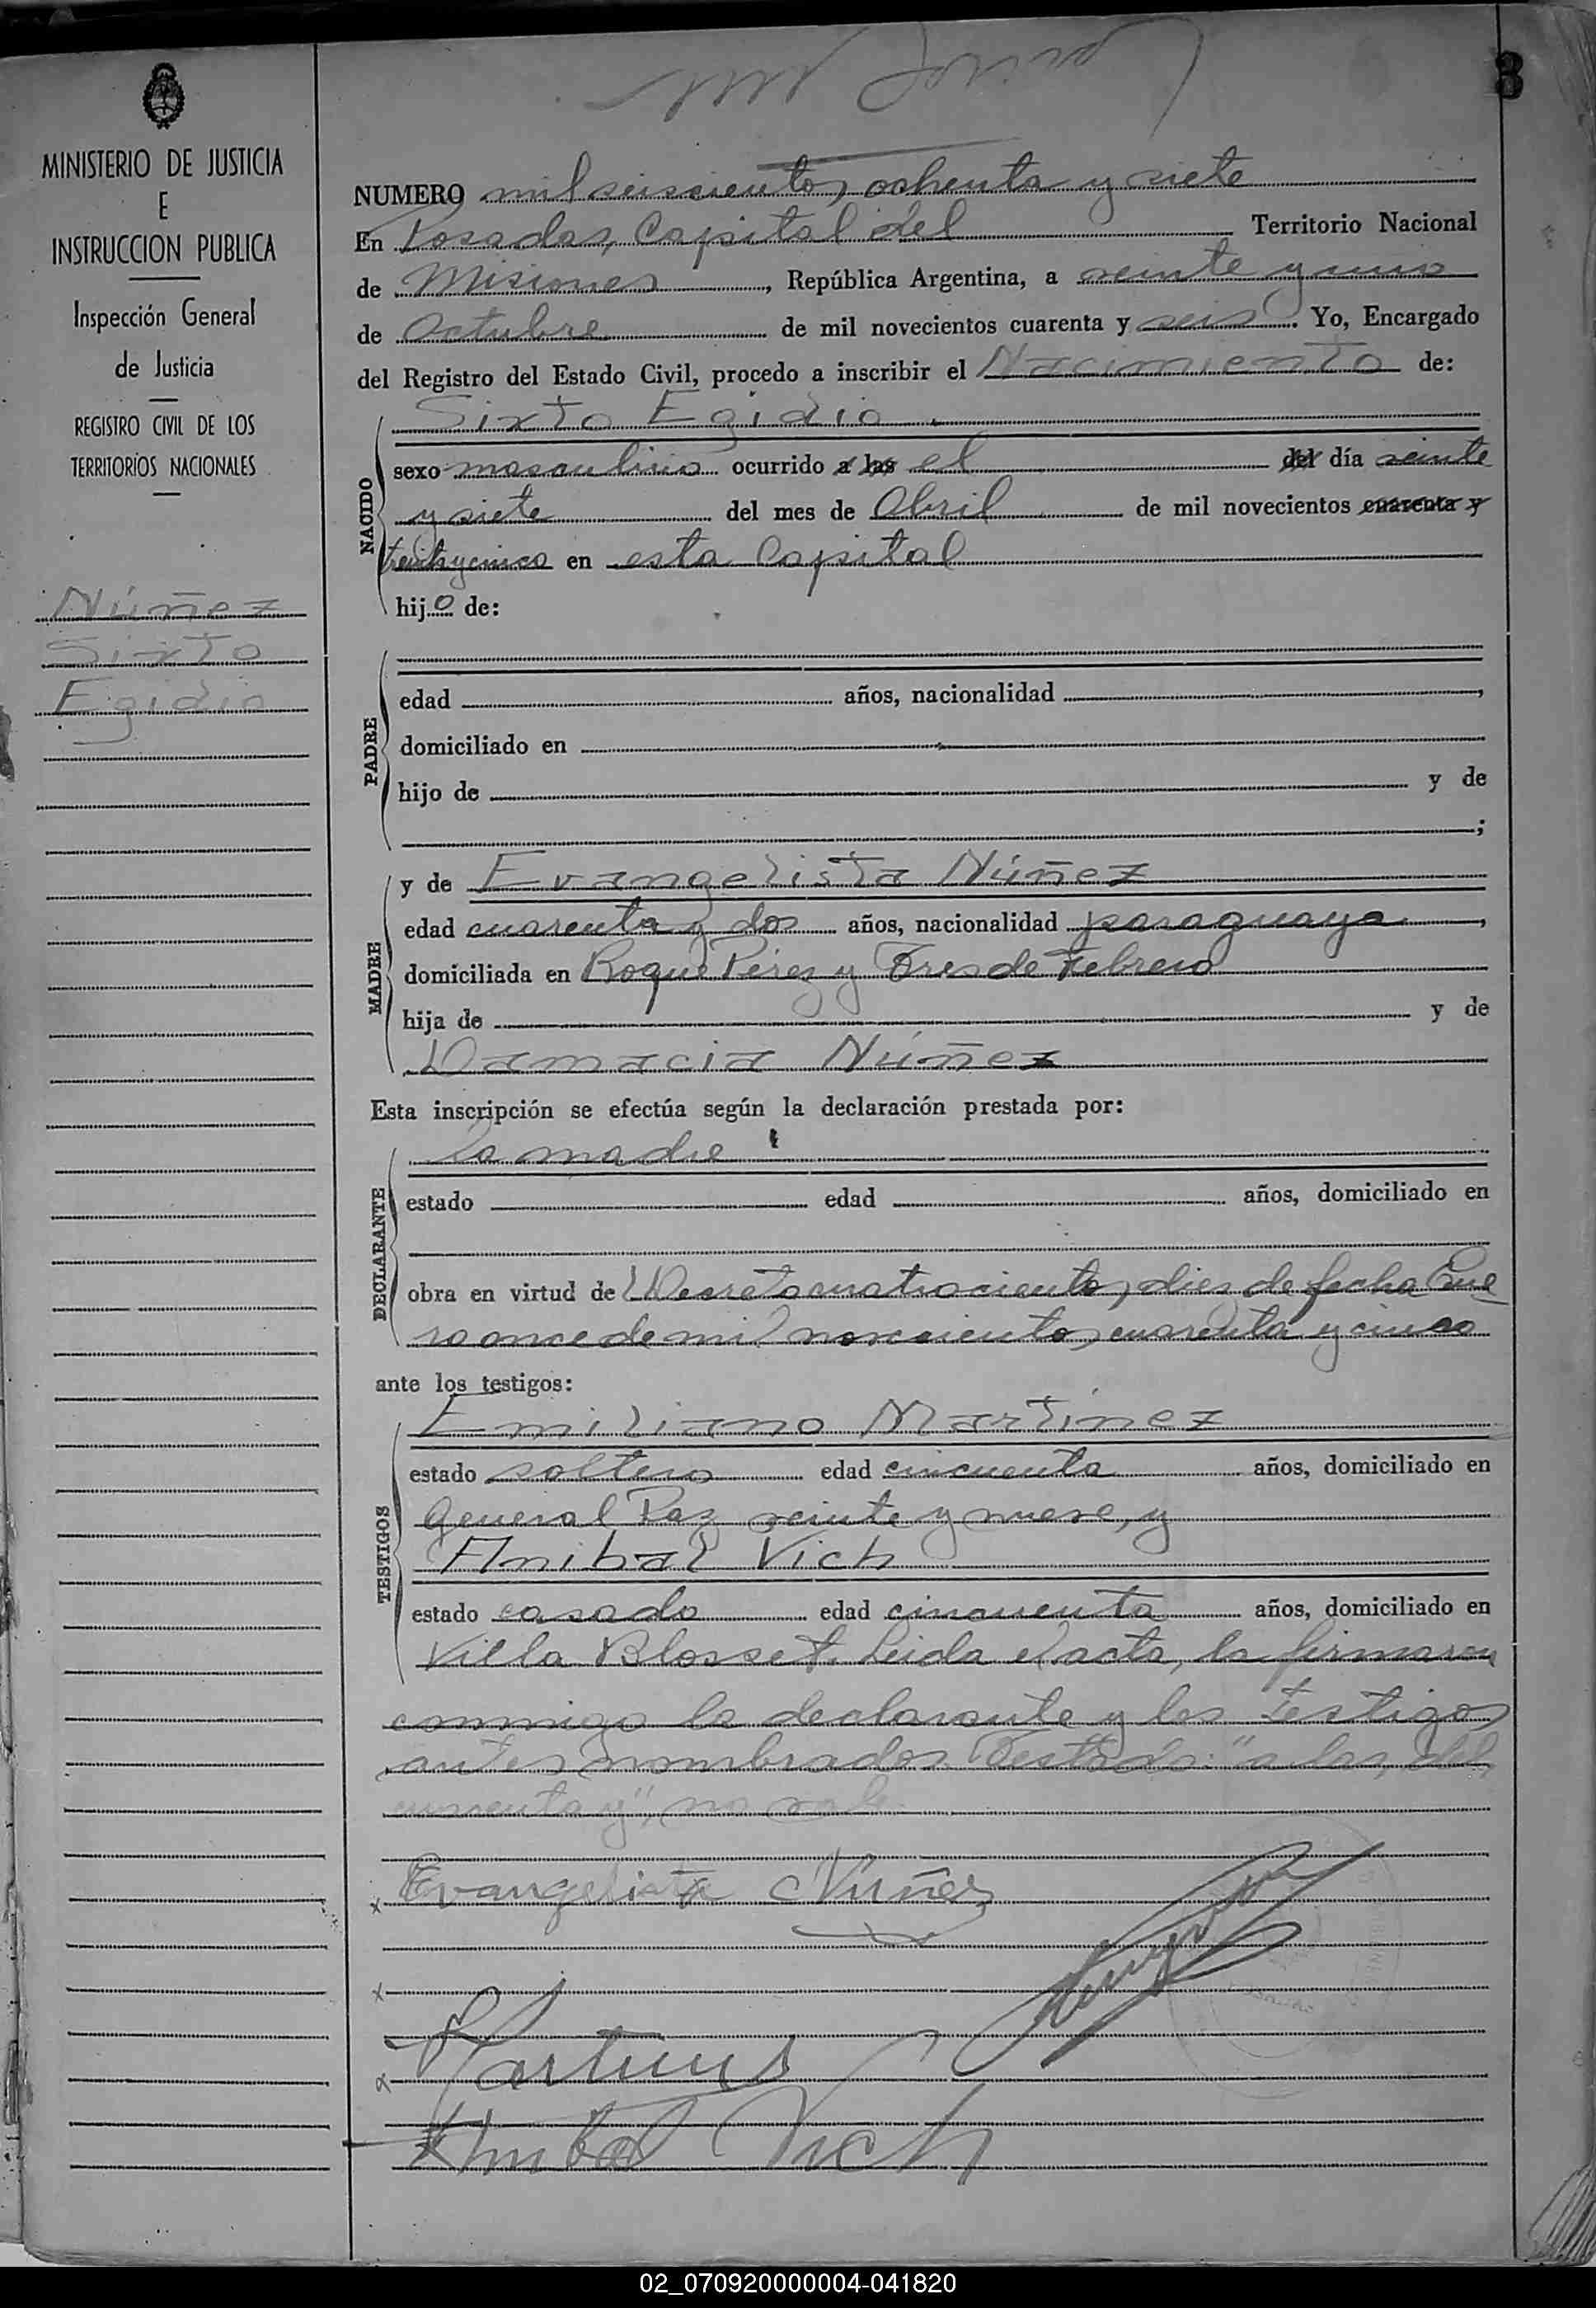 3
MINISTERIO DE JUSTICIA
E
INSTRUCCION PUBLICA
Inspección General
de Justicia
REGISTRO CIVIL DE LOS
TERRITORIOS NACIONALES
Núñez
Sixto
Egidio
NUMERO mil seiscientos ochenta y siete
En Posadas, Capital del Territorio Nacional
de Misiones, República Argentina, a veinte y uno
de Octubre de mil novecientos cuarenta y seis. Yo, Encargado
del Registro del Estado Civil, procedo a inscribir el Nacimiento de:
NACIDO
Sixto Egidio
sexo masculino ocurrido a las el del día veinte
y siete del mes de Abril de mil novecientos cuarenta y
treinta y cinco en esta Capital
hijo de:
PADRE
edad años, nacionalidad ,
domiciliado en
hijo de y de
;
MADRE
y de Evangelista Núñez
edad cuarenta y dos años, nacionalidad paraguaya,
domiciliada en Roque Pérez y Tres de Febrero
hija de y de
Damacia Núñez
Esta inscripción se efectúa según la declaración prestada por:
DECLARANTE
La madre
estado edad años, domiciliado en
obra en virtud de Decreto cuatrocientos diez de fecha Ene
ro once de mil novecientos cuarenta y cinco
ante los testigos:
TESTIGOS
Emiliano Martínez
estado soltero edad cincuenta años, domiciliado en
General Paz veinte y nueve, y
Anibal Vich
estado casado edad cincuenta años, domiciliado en
Villa Blosset. Leida el acta, la firmaron
conmigo la declarante y los testigos
antes nombrados. Testado: "a las, del,
cuarenta y", no vale.
x Evangelista Núñez
x
x Martines
Anibal Vich
02_070920000004-041820